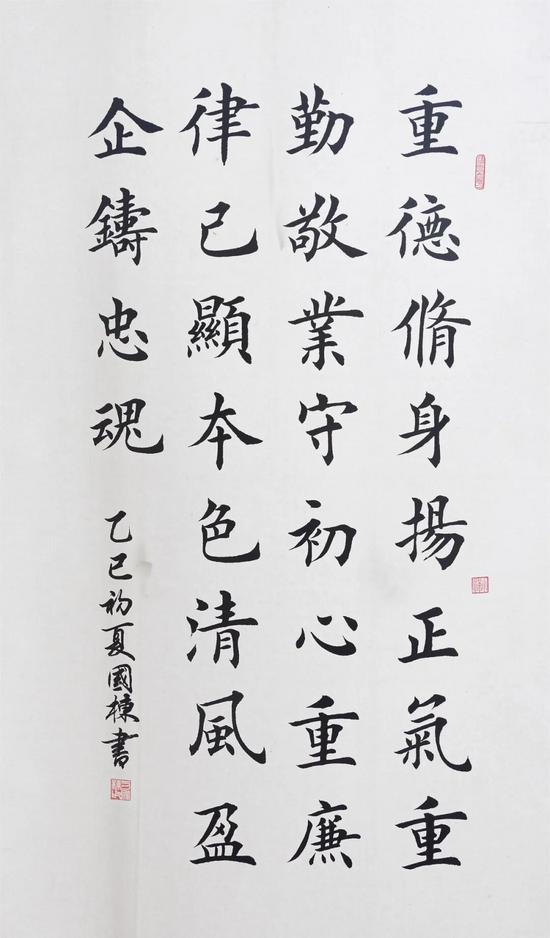 重德脩身揚正氣重
勤敬業守初心重廉
律己顯本色清風盈
企鑄忠魂
乙巳初夏國棟書